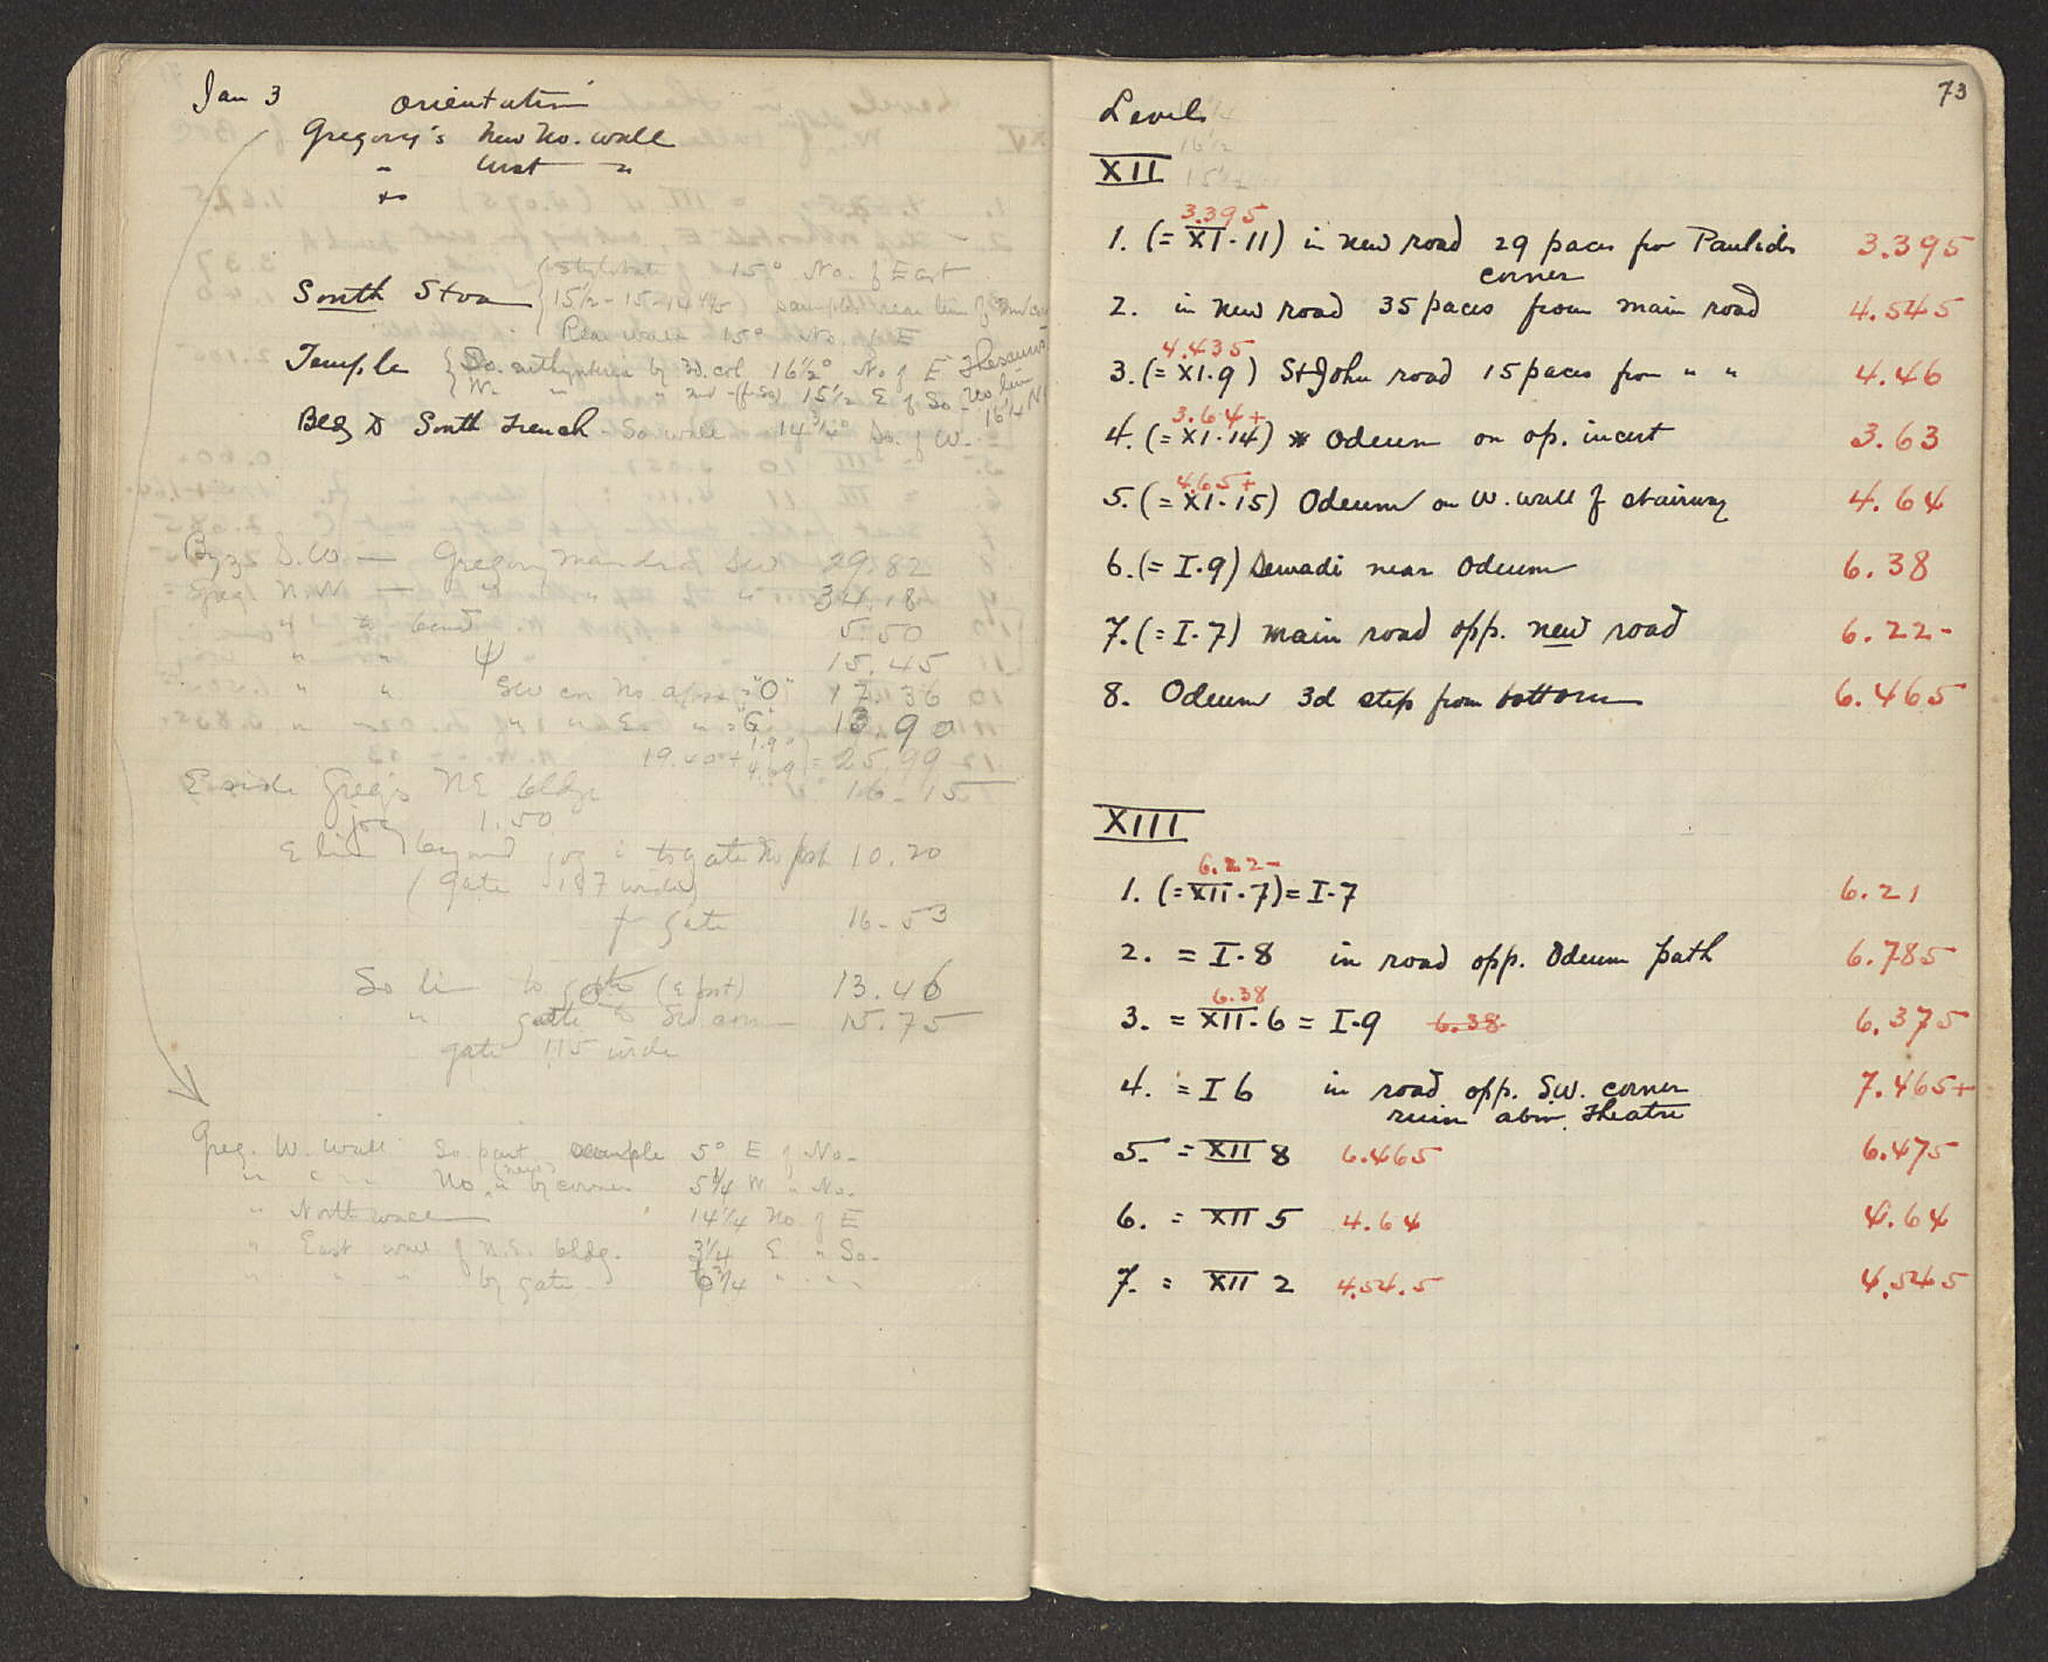 Jan 3 Orientation
Gregory's New No. wall
" West "
South Stoa
Stylobate 15° No. of East
15½ - 15 - 14 4/5
Rear wall 15° No. of E
Temple
So. by 3d. col 16½° No of E
W. " " 2nd - (fr So) 15½ E of So -
No line
16¼ N
Bldg D South Trench - So wall - 14¾° So. of W. -
Byz S.W — Gregory SW 29.82
Greg N.W — " " " 34.18
" 5.50
" " Ψ 15.45
" " SW cor No apse = "O" 17.36
" " " " E " = "G" 13.90
19.40 + 1.90 4.69 = 25.99
16-15
E side Greg's NE bldg
jog 1.50
E line beyond jog to gate No post 10.20
(gate 187 wide)
fr gate 16-53
So line to gate (E post) 13.46
" gate to SW corn 15.75
gate 115 wide
Greg. W. wall So part 5° E of No.
(new)
No. " by corner 5¼ W " No.
" North wall 14¼ No of E
" East wall of N.E. bldg. 3¼ E " So.
" " " by gate 6¾ " " "
73
Levels
XII
3.395
1. (= XI·11) in new road 29 paces fr Paulides 3.395
corner
2. in new road 35 paces from main road 4.545
4.435
3. (= XI.9) St John road 15 paces from " " 4.46
3.64+
4. (= XI·14) Odeum on op. incert 3.63
4.65+
5. (= XI·15) Odeum on W. wall of stairway 4.64
6. (= I·9) near Odeum 6.38
7. (= I·7) main road opp. new road 6.22-
8. Odeum 3d step from bottom 6.465
XIII
6.22-
1. (= XII·7) = I·7 6.21
2. = I·8 in road opp. Odeum path 6.785
6.38
3. = XII·6 = I·9 6.38 6.375
4. = I 6 in road opp. S.W. corner 7.465+
ruin above Theatre
5. = XII 8 6.465 6.475
6. = XII 5 4.64 4.64
7. = XII 2 4.54.5 4.545